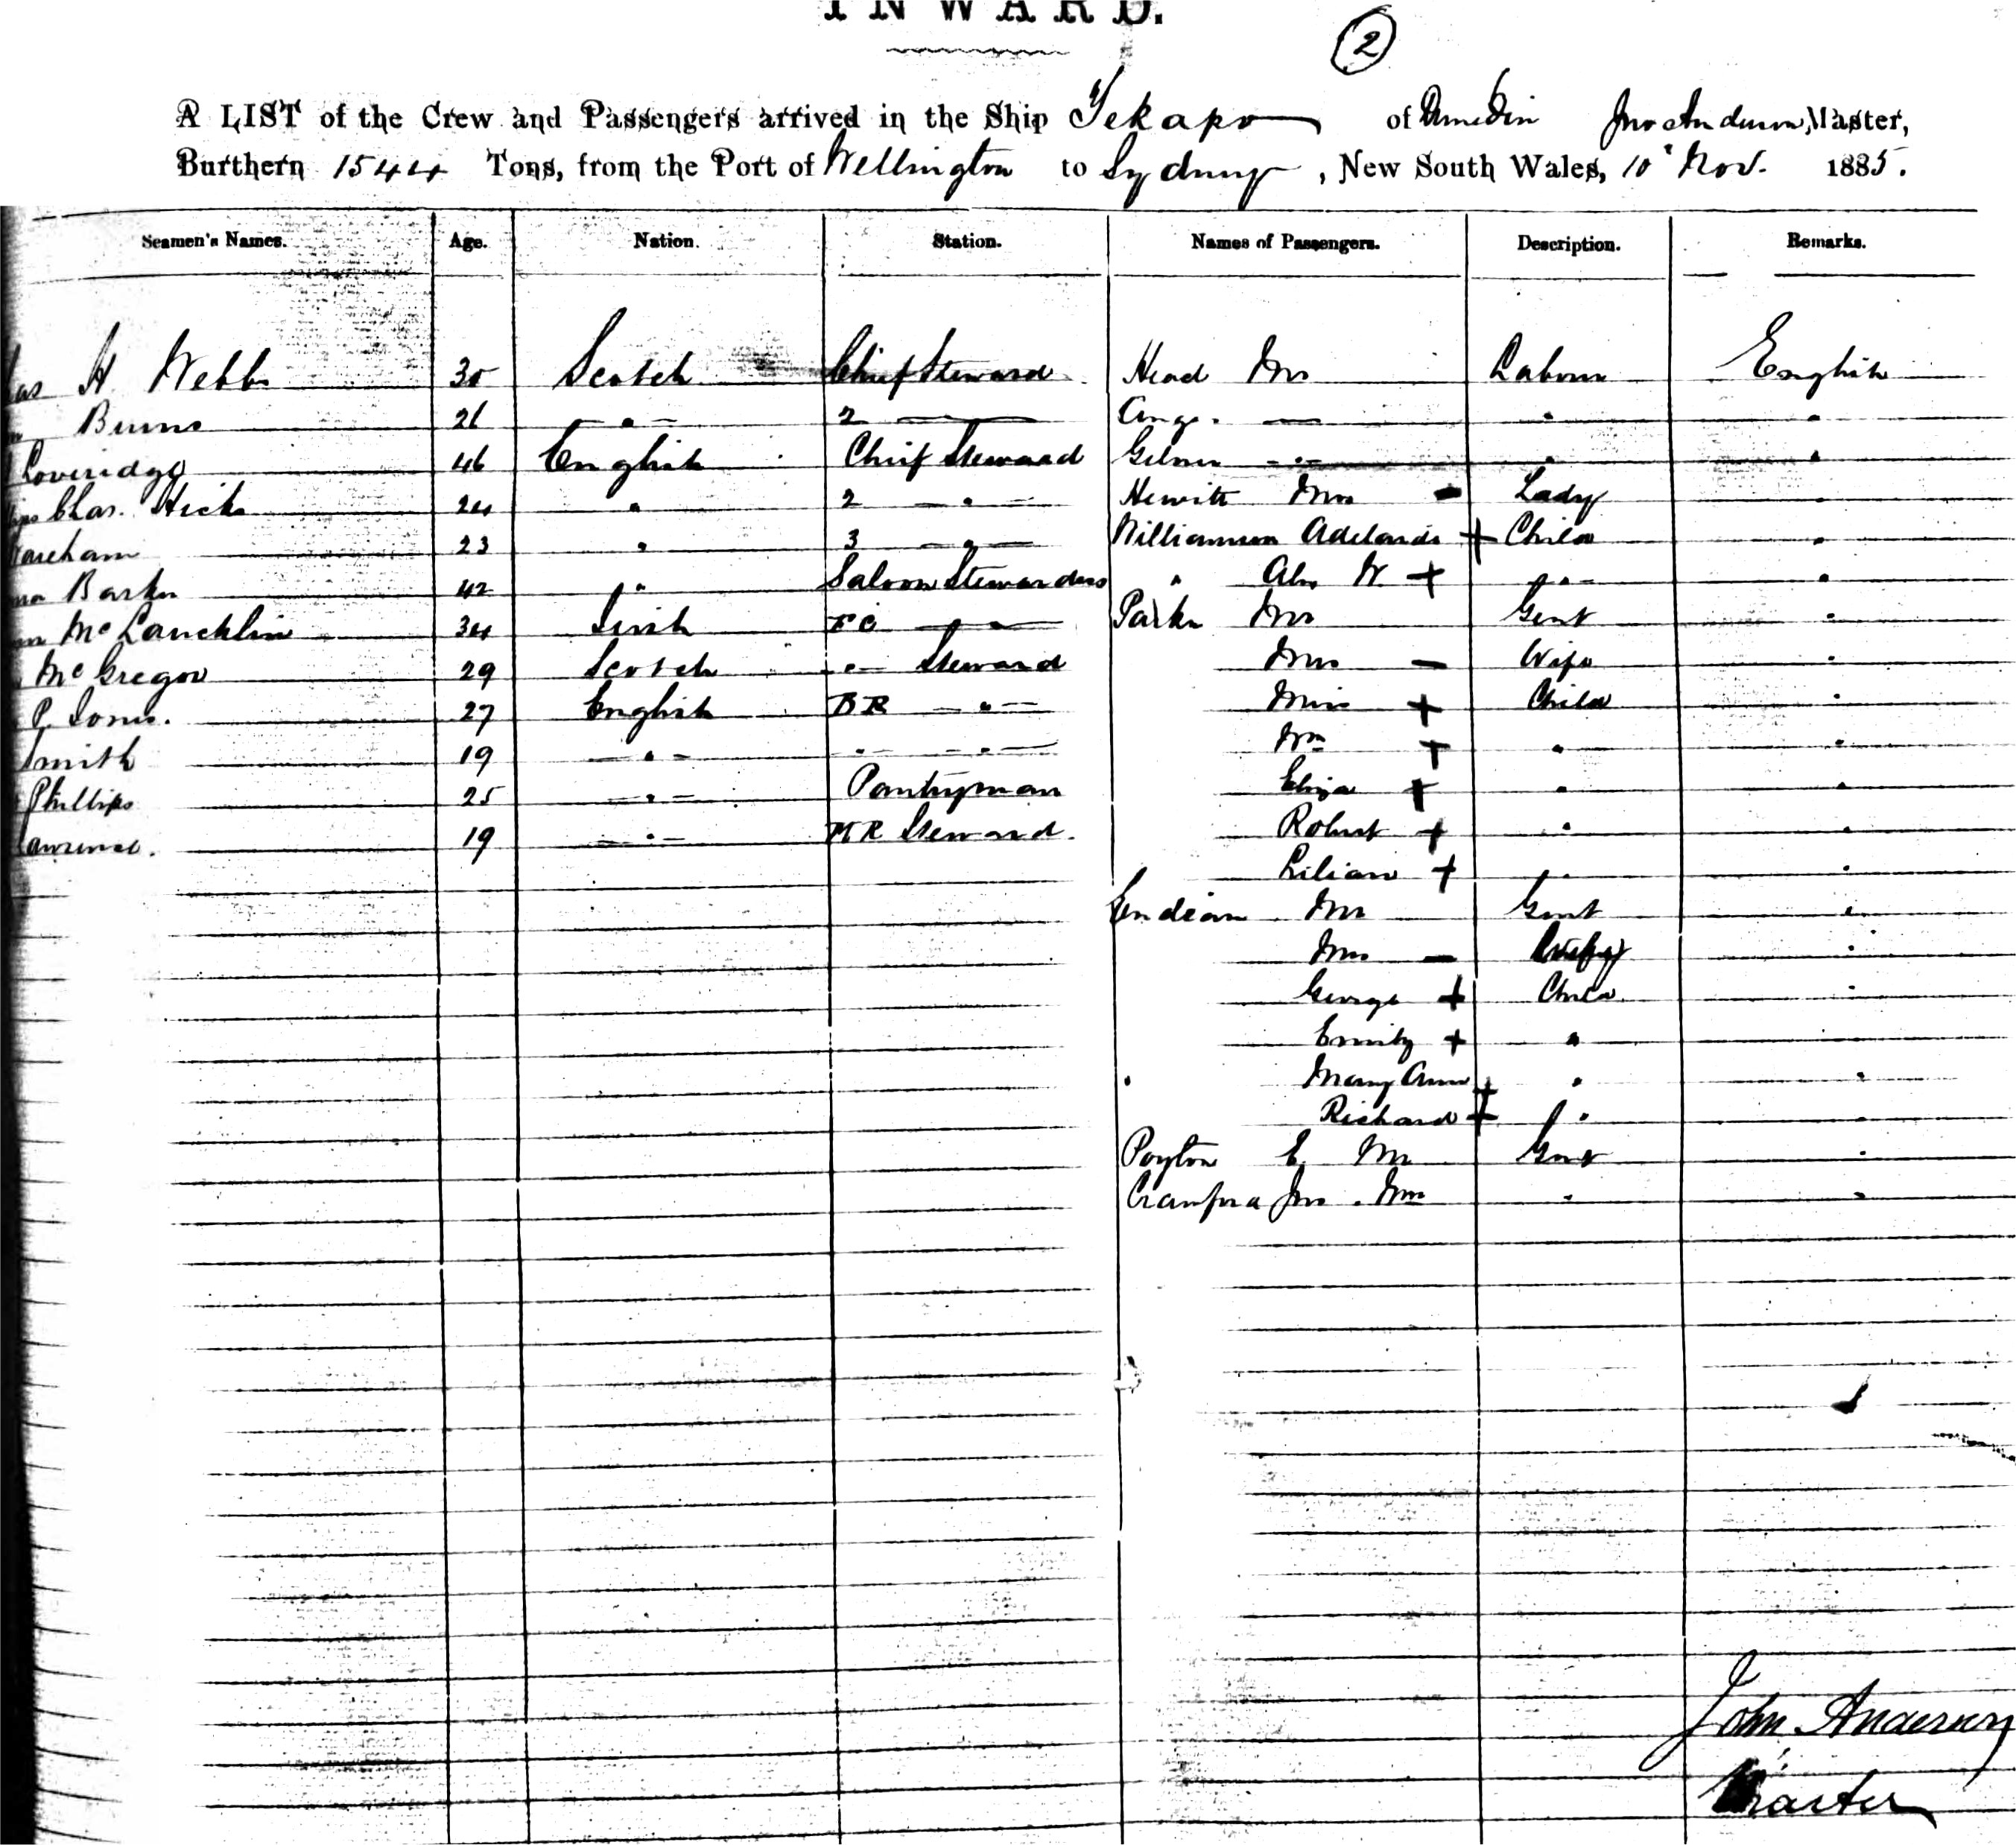 INWARD.
2
A LIST of the Crew and Passengers arrived in the Ship Tekapo of Dunedin Jno Anderson, Master,
Burthern 1544 Tons, from the Port of Wellington to Sydney, New South Wales, 10 Nov. 1885.
Seamen's Names. Age. Nation. Station. Names of Passengers. Description. Remarks.
H Webb 30 Scotch Chief Steward Head Mr Labour English
Burns 26 " 2 — — " "
Loveridge 46 English Chief Steward — " " "
Chas. Hicks 24 " 2 " Hewitt Mrs - Lady "
Wareham 23 " 3 " Williamson Adelaide + Child "
Barker 42 " Saloon Stewardess " W + " "
McLauchlin 34 Irish FC " Parker Mr Gent "
McGregor 29 Scotch " Steward Mrs - Wife "
P. Jones. 27 English BR " Miss + Child "
Smith 19 " " " Wm + " "
Phillips 25 " Pantryman Eliza + " "
Lawrence. 19 " MR Steward. Robert + " "
Lilian + " "
Endean Mr Gent "
Mrs - Wife "
George + Child "
Emily + " "
Mary Ann + " "
Richard + " "
Poyton E Mr Gent "
Crawford Jno. " "
John Anderson
Master